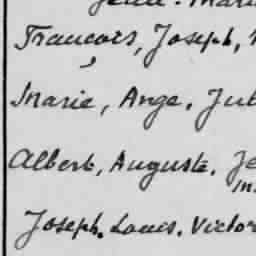 François, Joseph,
Marie, Ange, Jul
Albert, Auguste, Je
Joseph. Louis. Victor